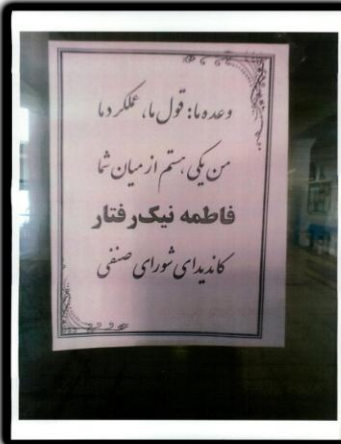 وعده ما: قول ما، عملکرد ما
من یکی هستم از میان شما
فاطمه نیک رفتار
کاندیدای شورای صنفی